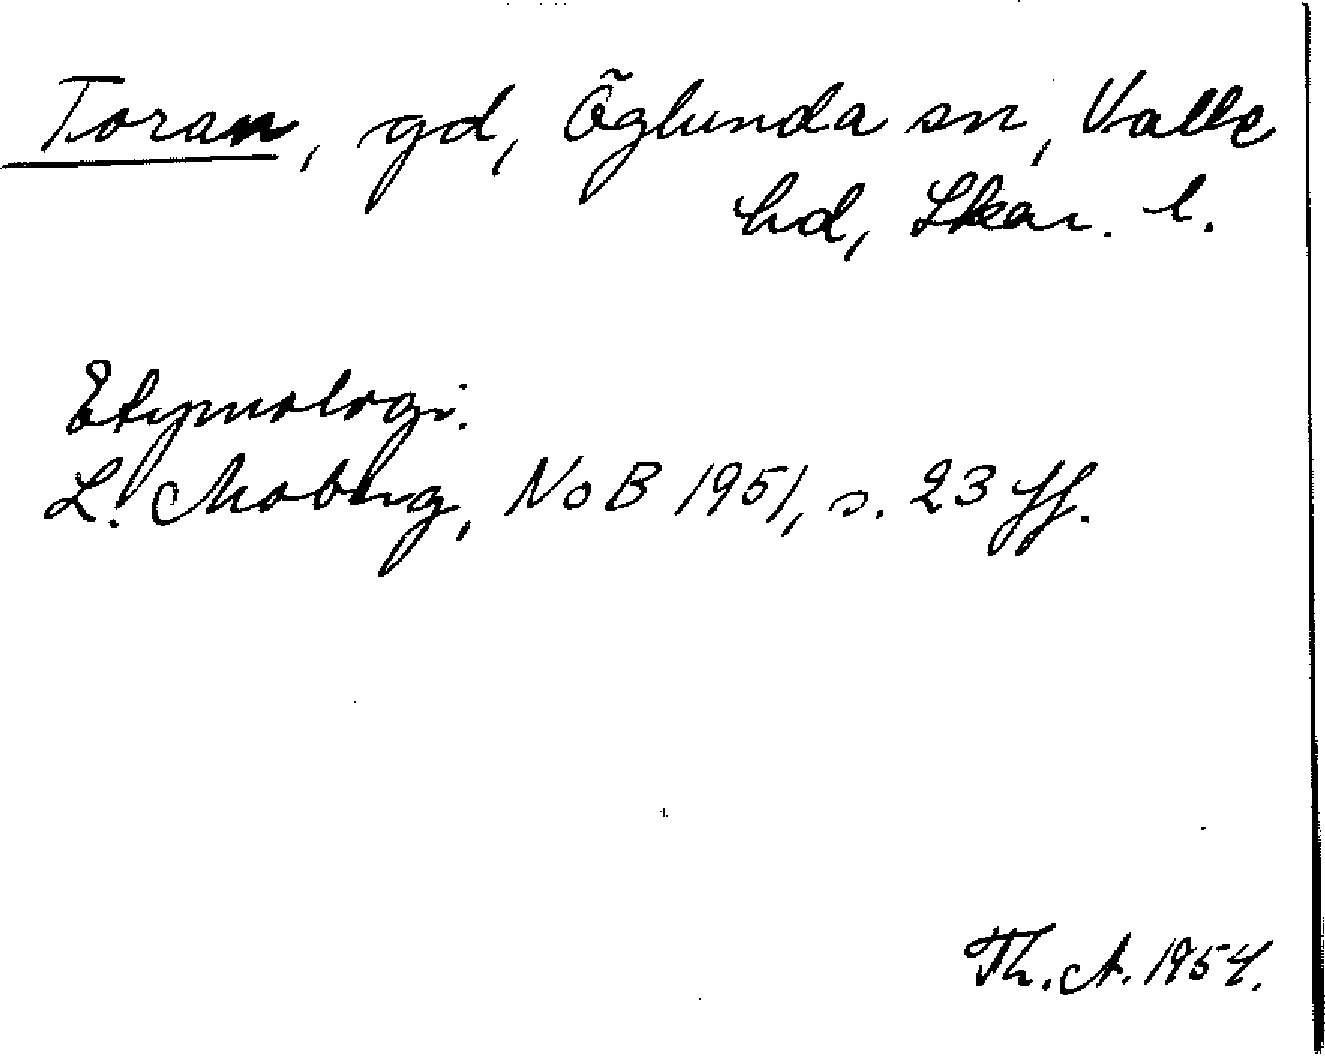 Toran, gd, Öglunda sn, Valle
hd, Skar. l.
Etymologi:
L. Moberg, NoB 1951, s. 23 ff.
Th. A. 1954.